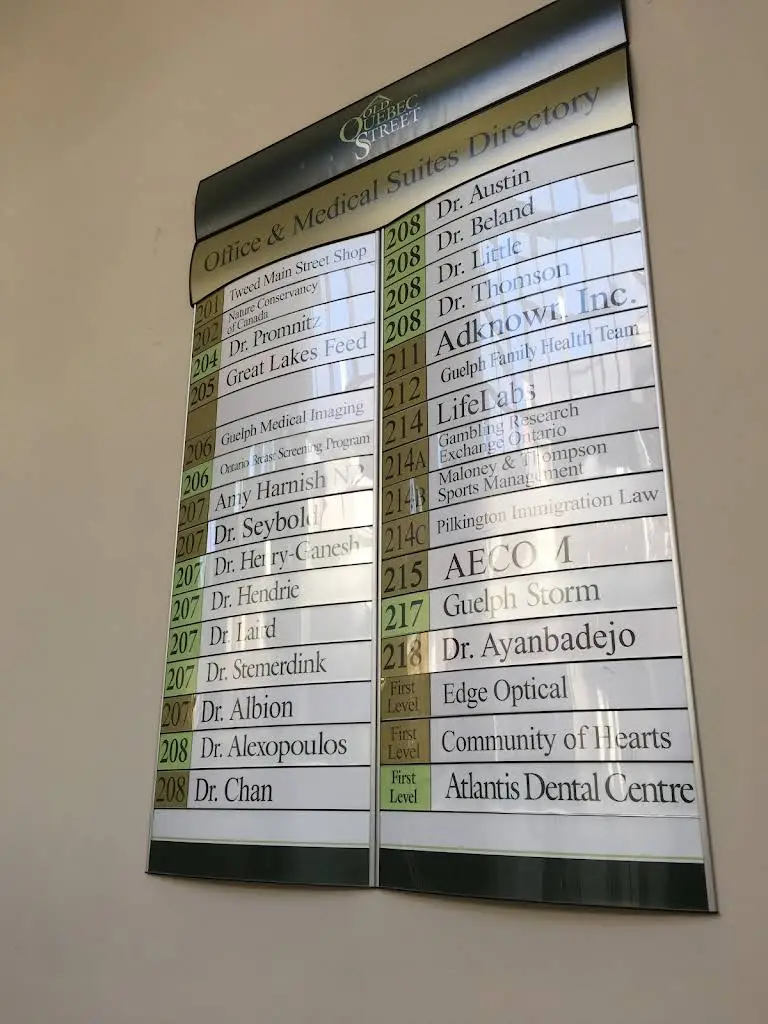 OLD
QUEBEC
STREET
Office & Medical Suites Directory
201 Tweed Main Street Shop
202 Nature Conservancy
of Canada
204 Dr. Promnitz
205 Great Lakes Feed
206 Guelph Medical Imaging
206 Ontario Breast Screening Program
207 Amy Harnish NP
207 Dr. Seybold
207 Dr. Henry-Ganesh
207 Dr. Hendrie
207 Dr. Laird
207 Dr. Stemerdink
207 Dr. Albion
208 Dr. Alexopoulos
208 Dr. Chan
208 Dr. Austin
208 Dr. Beland
208 Dr. Little
208 Dr. Thomson
211 Adknown, Inc.
212 Guelph Family Health Team
214 LifeLabs
214A Gambling Research
Exchange Ontario
214B Maloney & Thompson
Sports Management
214C Pilkington Immigration Law
215 AECOM
217 Guelph Storm
218 Dr. Ayanbadejo
First
Level Edge Optical
First
Level Community of Hearts
First
Level Atlantis Dental Centre